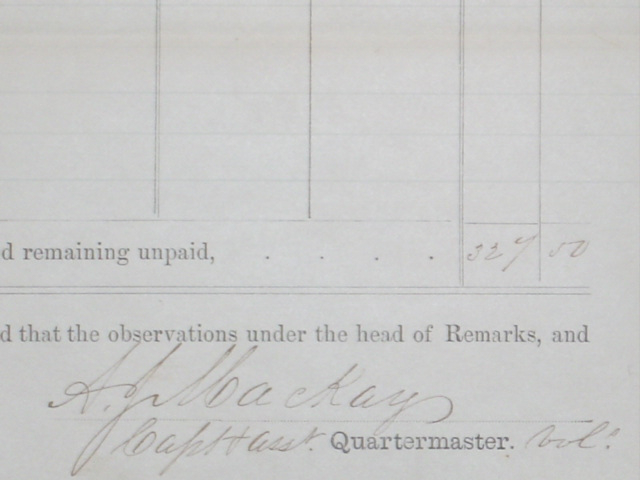 d remaining unpaid, . . . . 327 50
d that the observations under the head of Remarks, and
A. J. Mackay
Capt & asst. Quartermaster. Vols.